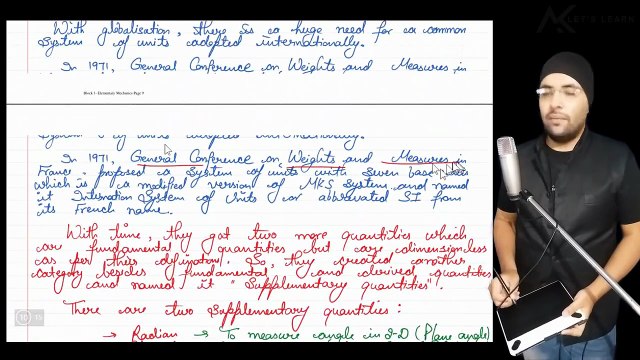 With globalisation, there is a huge need for a common
System of units adopted internationally.
In 1971, General Conference on Weights and Measures in
Block 1- Elementary Mechanics Page 9
In 1971, General Conference on Weights and Measures in
France proposed a System of units with Seven base
which is a modified version of MKS System and named
it System of Units or SI from
its French name.
With time, they got two more quantities which
are fundamental quantities but are dimensionless
as per their So, they created another
category besides fundamental and derived quantities
and named it "Supplementary quantities".
There are two Supplementary quantities:
→ Radian → To measure angle in 2-D (Plane angle)
LET'S LEARN